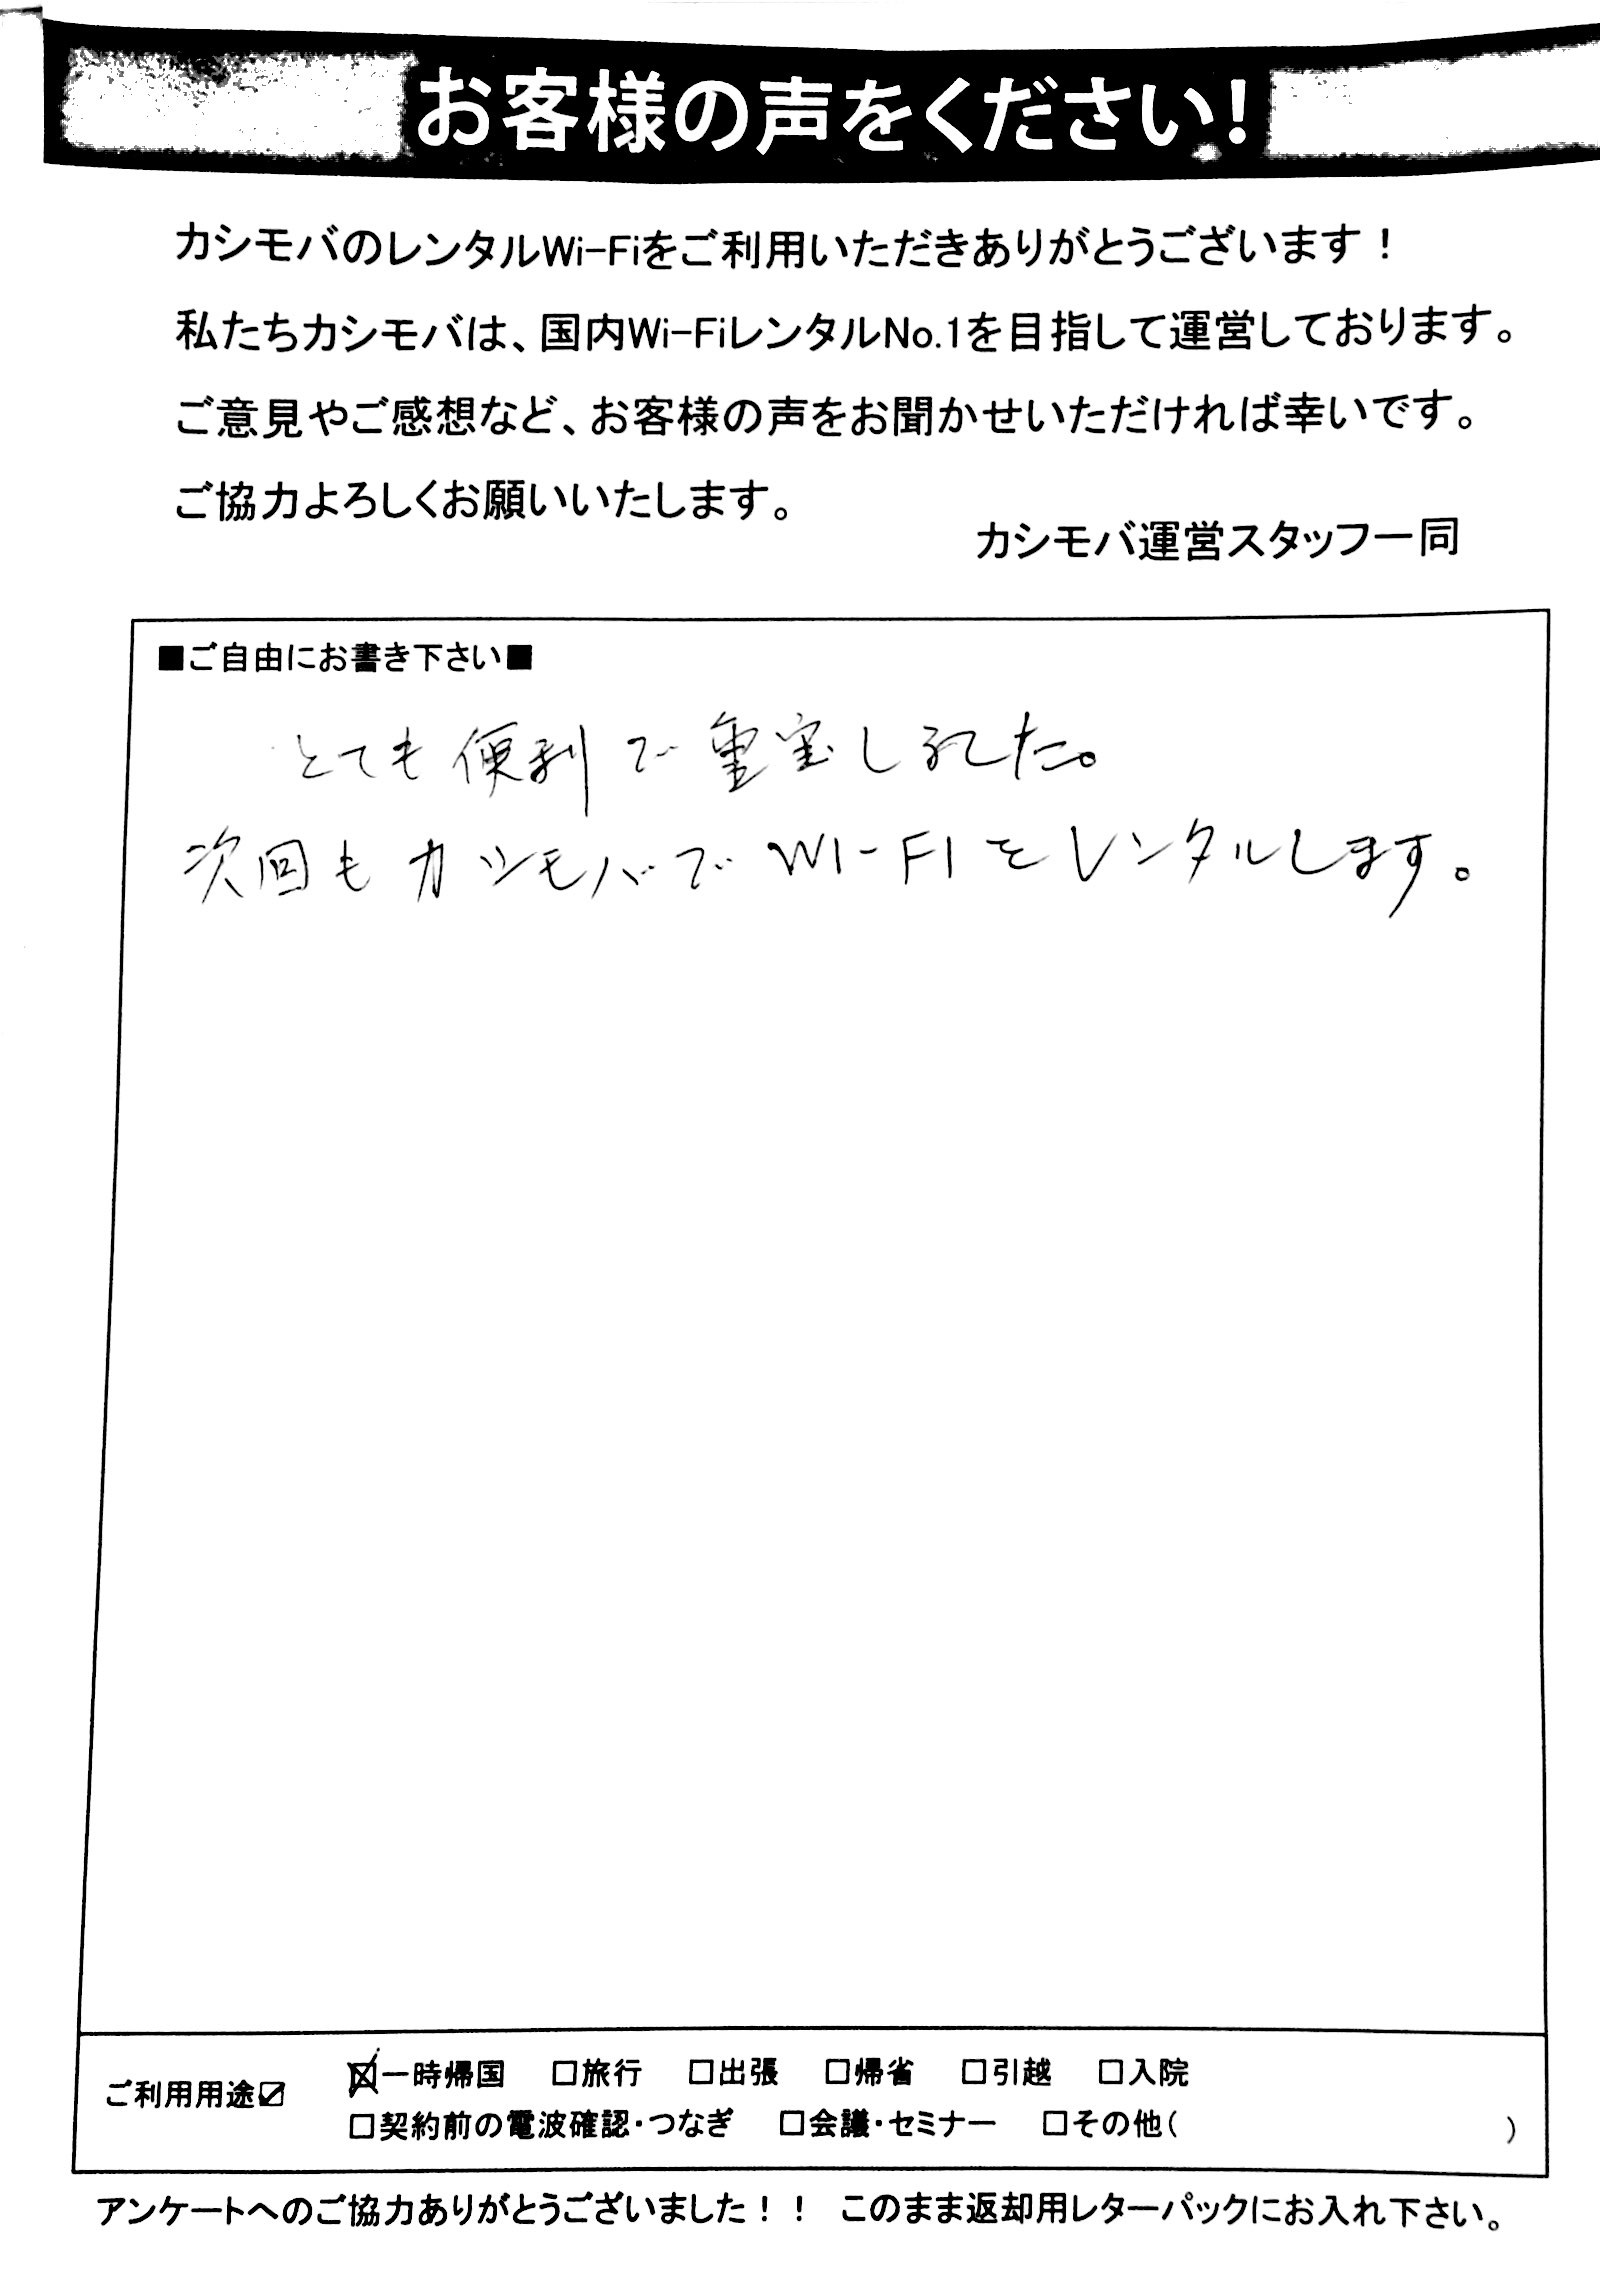 お客様の声をください!
カシモバのレンタルWi-Fiをご利用いただきありがとうございます！
私たちカシモバは、国内Wi-FiレンタルNo.1を目指して運営しております。
ご意見やご感想など、お客様の声をお聞かせいただければ幸いです。
ご協力よろしくお願いいたします。
カシモバ運営スタッフ一同
■ご自由にお書き下さい■
とても便利で重宝しました。
次回もカシモバでWI-FIをレンタルします。
ご利用用途☑
☒一時帰国 □旅行 □出張 □帰省 □引越 □入院
□契約前の電波確認・つなぎ □会議・セミナー □その他( )
アンケートへのご協力ありがとうございました！！ このまま返却用レターパックにお入れ下さい。